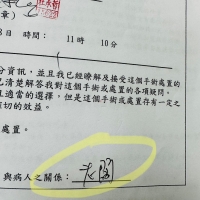 章）
8日 時間： 11時 10分
分資訊，並且我已經瞭解及接受這個手術處置的
已清楚解答我對這個手術或處置的各項疑問。
且適當的選擇。但是這個手術或處置存有一定之
確切的效益。
處置。
與病人之關係：